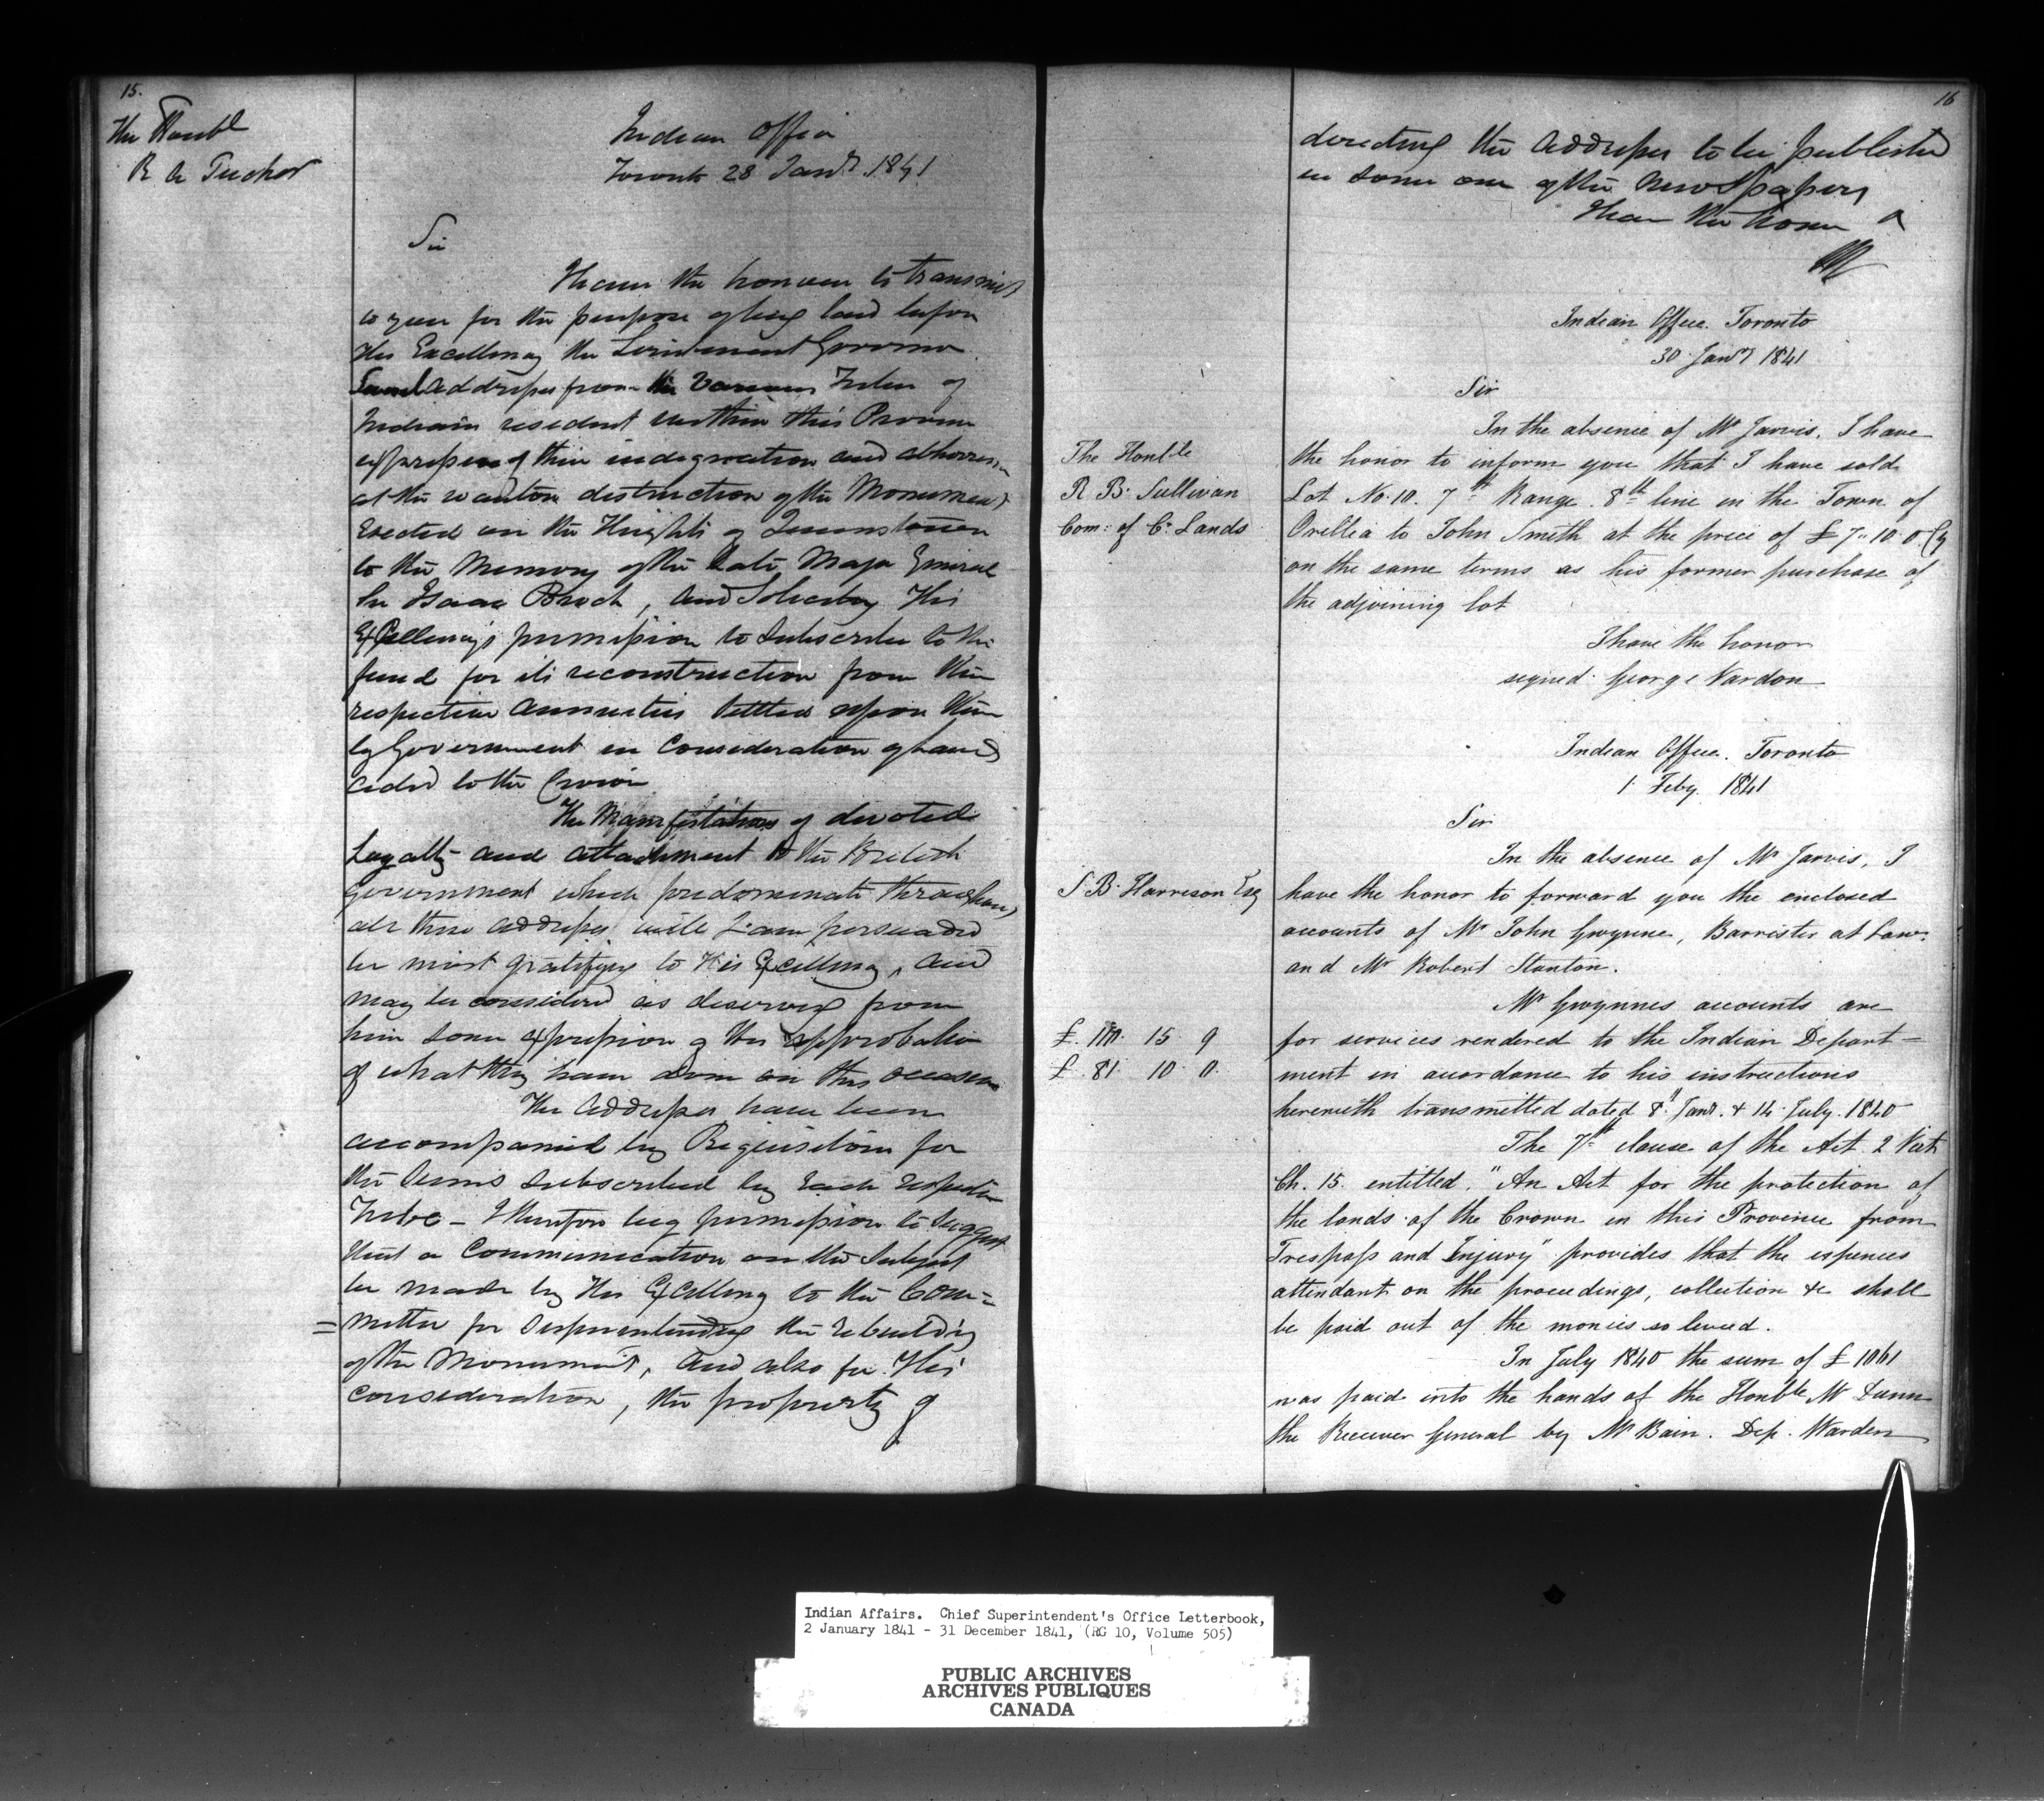 15.
The Honbl
R A Tucker
Indian Office
Toronto 28 Jany 1841
Sir
I have the honour to transmit
to you for the purpose of being laid before
His Excellency the Lieutenant Governor
Addresses from the various Tribes of
Indians resident within this Province
expressive of their indignation and abhorrence
at the wanton destruction of the Monument
Erected on the Heights of Queenstown
to the Memory of the late Major General
Sir Isaac Brock, and Soliciting His
Excellency's permission to Subscribe to the
fund for its reconstruction from their
respective Annuities Settled upon them
by Government in Consideration of lands
ceded to the Crown
The Manifestations of devoted
Loyalty and attachment to the British
Government which predominate throughout
all these addresses will I am persuaded
be most gratifying to His Excellency, and
may be considered as deserving from
him some expression of His approbation
of what they have done on this occasion
The Addresses have been
accompanied by Requisitions for
the Sums Subscribed by Each respective
Tribe – I therefore beg permission to Suggest
that a Communication on the Subject
be made by His Excellency to the Com=
=mittee for Superintending the rebuilding
of the Monument, and also for His
Consideration, the property of
16
directing the Addresses to be published
in some one of the Newspapers
I have the honor
Indian Office. Toronto
30 Jany 1841
Sir
The Honble
R B. Sullivan
Com: of Cn. Lands
In the absence of Mr Jarvis, I have
the honor to inform you that I have sold
Lot No. 10. 7th Range. 8th line in the Town of
Orillia to John Smith at the price of £7..10.0. Cy
on the same terms as his former purchase of
the adjoining lot
I have the honor
signed George Vardon
Indian Office. Toronto
1 Feby. 1841
Sir
S B. Harrison Esq
In the absence of Mr Jarvis, I
have the honor to forward you the enclosed
accounts of Mr John Gwynne, Barrister at Law.
and Mr Robert Stanton.
Mr Gwynnes accounts are
£ 15 9
£ 81 10 0
for services rendered to the Indian Depart=
ment in accordance to his instructions
herewith transmitted dated 8th Jany. & 14 July. 1840
The 7th clause of the Act 2 Vict
Ch. 15. entitled, "An Act for the protection of
the lands of the Crown in this Province from
Trespass and Injury" provides that the expences
attendant on the proceedings, collection &c shall
be paid out of the monies so levied.
In July 1840 the sum of £1061
was paid into the hands of the Honble Mr Dunn
the Receiver General by Mr Bain. Dep. Warden
Indian Affairs. Chief Superintendent's Office Letterbook,
2 January 1841 - 31 December 1841, (RG 10, Volume 505)
PUBLIC ARCHIVES
ARCHIVES PUBLIQUES
CANADA